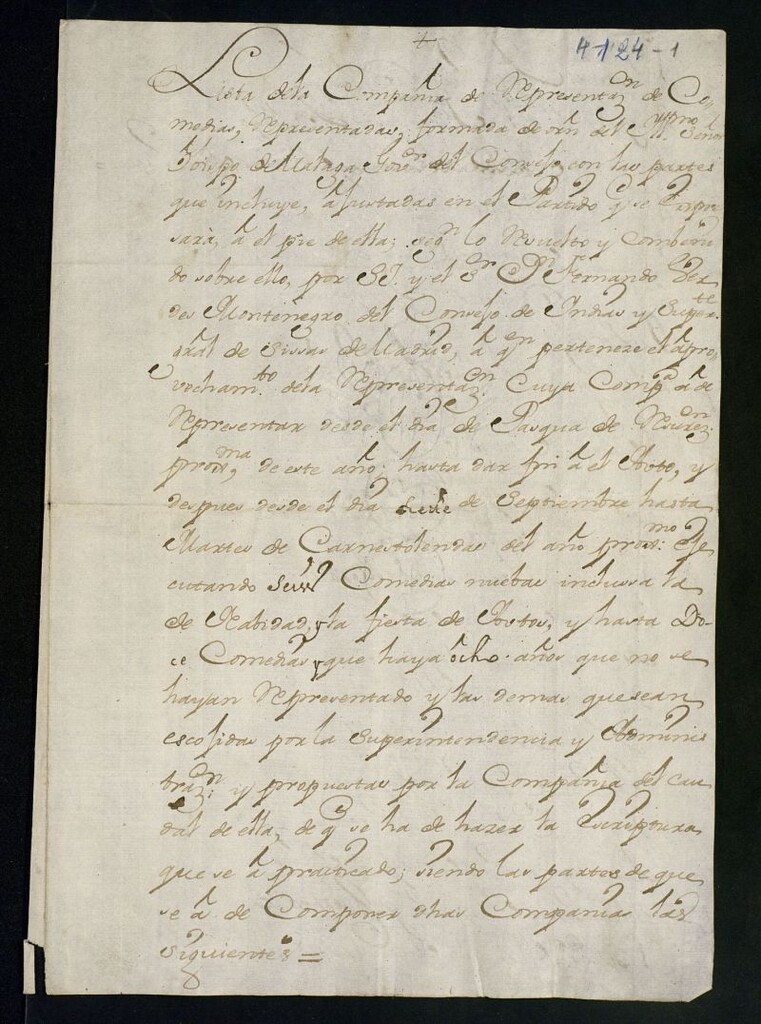 +
4-124-1
Lista dela Compañia de Representaz.on de Co
medias, Representadas, formada de orn del Yll.mo Señor
Obispo de Malaga Gov.or del Consejo, con las partes
que incluye, ajustadas en el Partido q.e se expre
sará, á el pie de ella; segn lo Resuelto y combeni
do sobre ello, por S.I. y el S.r D.n Fernando Ver
des Montenegro del Consejo de Indias y Superi.te
gral de Sissas de Madrid, á q.n perteneze el apro
vecham.to dela Representaz.on Cuya Comp.a á de
Representar desde el dia de Pasqua de Resurez.on
prox.ma de este año; hasta dar fin á el Auto, y
despues desde el dia siete de Septiembre hasta
Martes de Carnestolendas del año prox.mo Eje
cutando Seis Comedias nuebas inclussa la
de Nabidad, y la fiesta de Autos, y hasta Do
ce Comedias, que haya ôcho años que no se
hayan Representado y las demas que sean
escojidas por la Superintendencia y Adminis
traz.on y propuestas por la Compañia del cau
dal de ella, de q.e se ha de hazer la Escriptura
que se á practicado; siendo las partes de que
se á de Componer dhas Compañias las
siguientes =